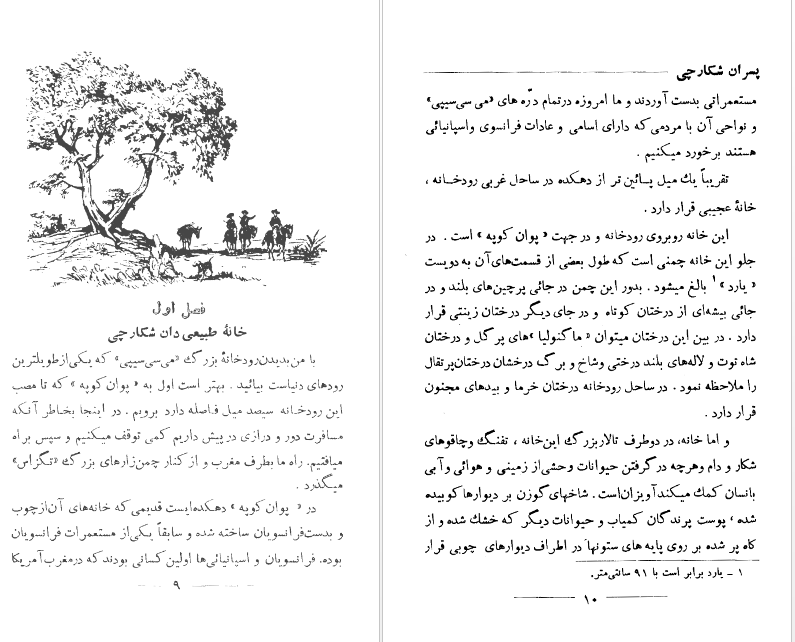 فصل اول
خانهٔ طبیعی دان شکارچی
با من بدیدن رودخانهٔ بزرگ «می‌سی‌سیپی» که یکی از طویلترین
رودهای دنیاست بیائید . بهتر است اول به «پوان کوپه» که تا مصب
این رودخانه سیصد میل فاصله دارد برویم . در اینجا بخاطر آنکه
مسافرت دور و درازی در پیش داریم کمی توقف میکنیم و سپس براه
میافتیم. راه ما بطرف مغرب و از کنار چمن‌زارهای بزرگ «تگزاس»
میگذرد .
در «پوان کوپه» دهکده‌ایست قدیمی که خانه‌های آن از چوب
و بدست فرانسویان ساخته شده و سابقاً یکی از مستعمرات فرانسویان
بوده. فرانسویان و اسپانیائی‌ها اولین کسانی بودند که در مغرب آمریکا
۹
پسران شکارچی
مستعمراتی بدست آوردند و ما امروزه در تمام درّه های «می سی‌سیپی»
و نواحی آن با مردمی که دارای اسامی و عادات فرانسوی واسپانیائی
هستند برخورد میکنیم .
تقریباً یك میل پــائین تر از دهکده در ساحل غربی رودخــانه ،
خانهٔ عجیبی قرار دارد .
این خانه روبروی رودخانه و در جهت «پوان کوپه» است . در
جلو این خانه چمنی است که طول بعضی از قسمت‌های آن به دویست
«یارد» ۱ بالغ میشود . بدور این چمن در جائی پرچین‌های بلند و در
جائی بیشه‌ای از درختان کوتاه و در جای دیگر درختان زینتی قرار
دارد . در بین این درختان میتوان «ماگنولیا»های پر گل و درختان
شاه توت و لاله‌های بلند درختی وشاخ و برگ درخشان درختان پرتقال
را ملاحظه نمود . در ساحل رودخانه درختان خرما و بیدهای مجنون
قرار دارد .
و اما خانه، در دوطرف تالار بزرگ این خانه ، تفنگ وچاقوهای
شکار و دام وهرچه در گرفتن حیوانات وحشی‌از زمینی و هوائی وآبی
بانسان کمك میکند آویزان‌است . شاخهای گوزن بر دیوارها کوبیده
شده ، پوست پرندگان کمیاب و حیوانات دیگر که خشك شده و از
کاه پر شده بر روی پایه های ستونها در اطراف دیوارهای چوبی قرار
۱ – یارد برابر است با ۹۱ سانتی‌متر.
۱۰